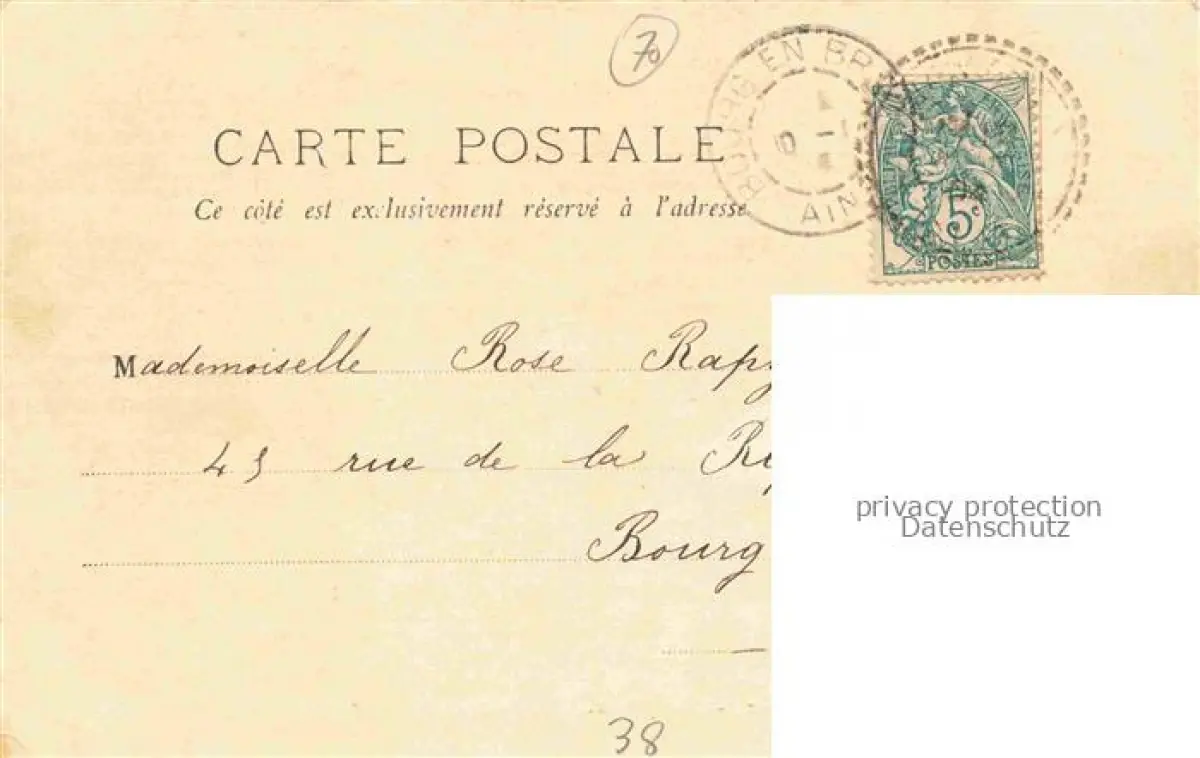 70
BOURG EN BR
AIN
CARTE POSTALE
Ce côté est exclusivement réservé à l'adresse
5c
POSTES
Mademoiselle Rose
45 rue de la
Bourg
privacy protection
Datenschutz
38